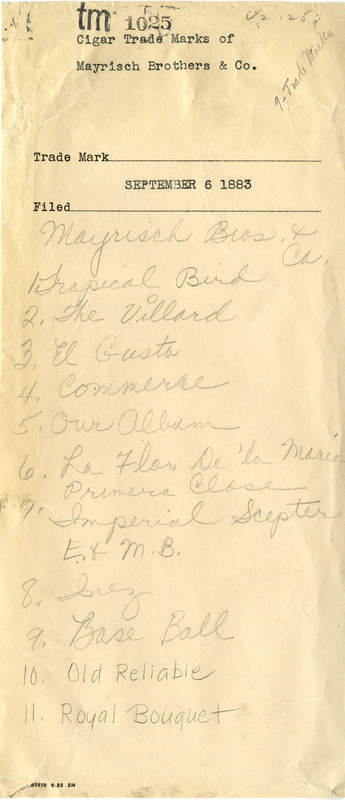 tm 1025
Cigar Trade Marks of
Mayrisch Brothers & Co.
9-Trade Marks
Trade Mark
SEPTEMBER 6 1883
Filed
Mayrisch Bros. &
Co.
1. Tropical Bird
2. The Villard
3. El Gusto
4. Commerce
5. Our Album
6. La Flor De'la Maria
Primera Close
7. Imperial Scepter
E. & M. B.
8. Inez
9. Base Ball
10. Old Reliable
11. Royal Bouquet
6-32 2M